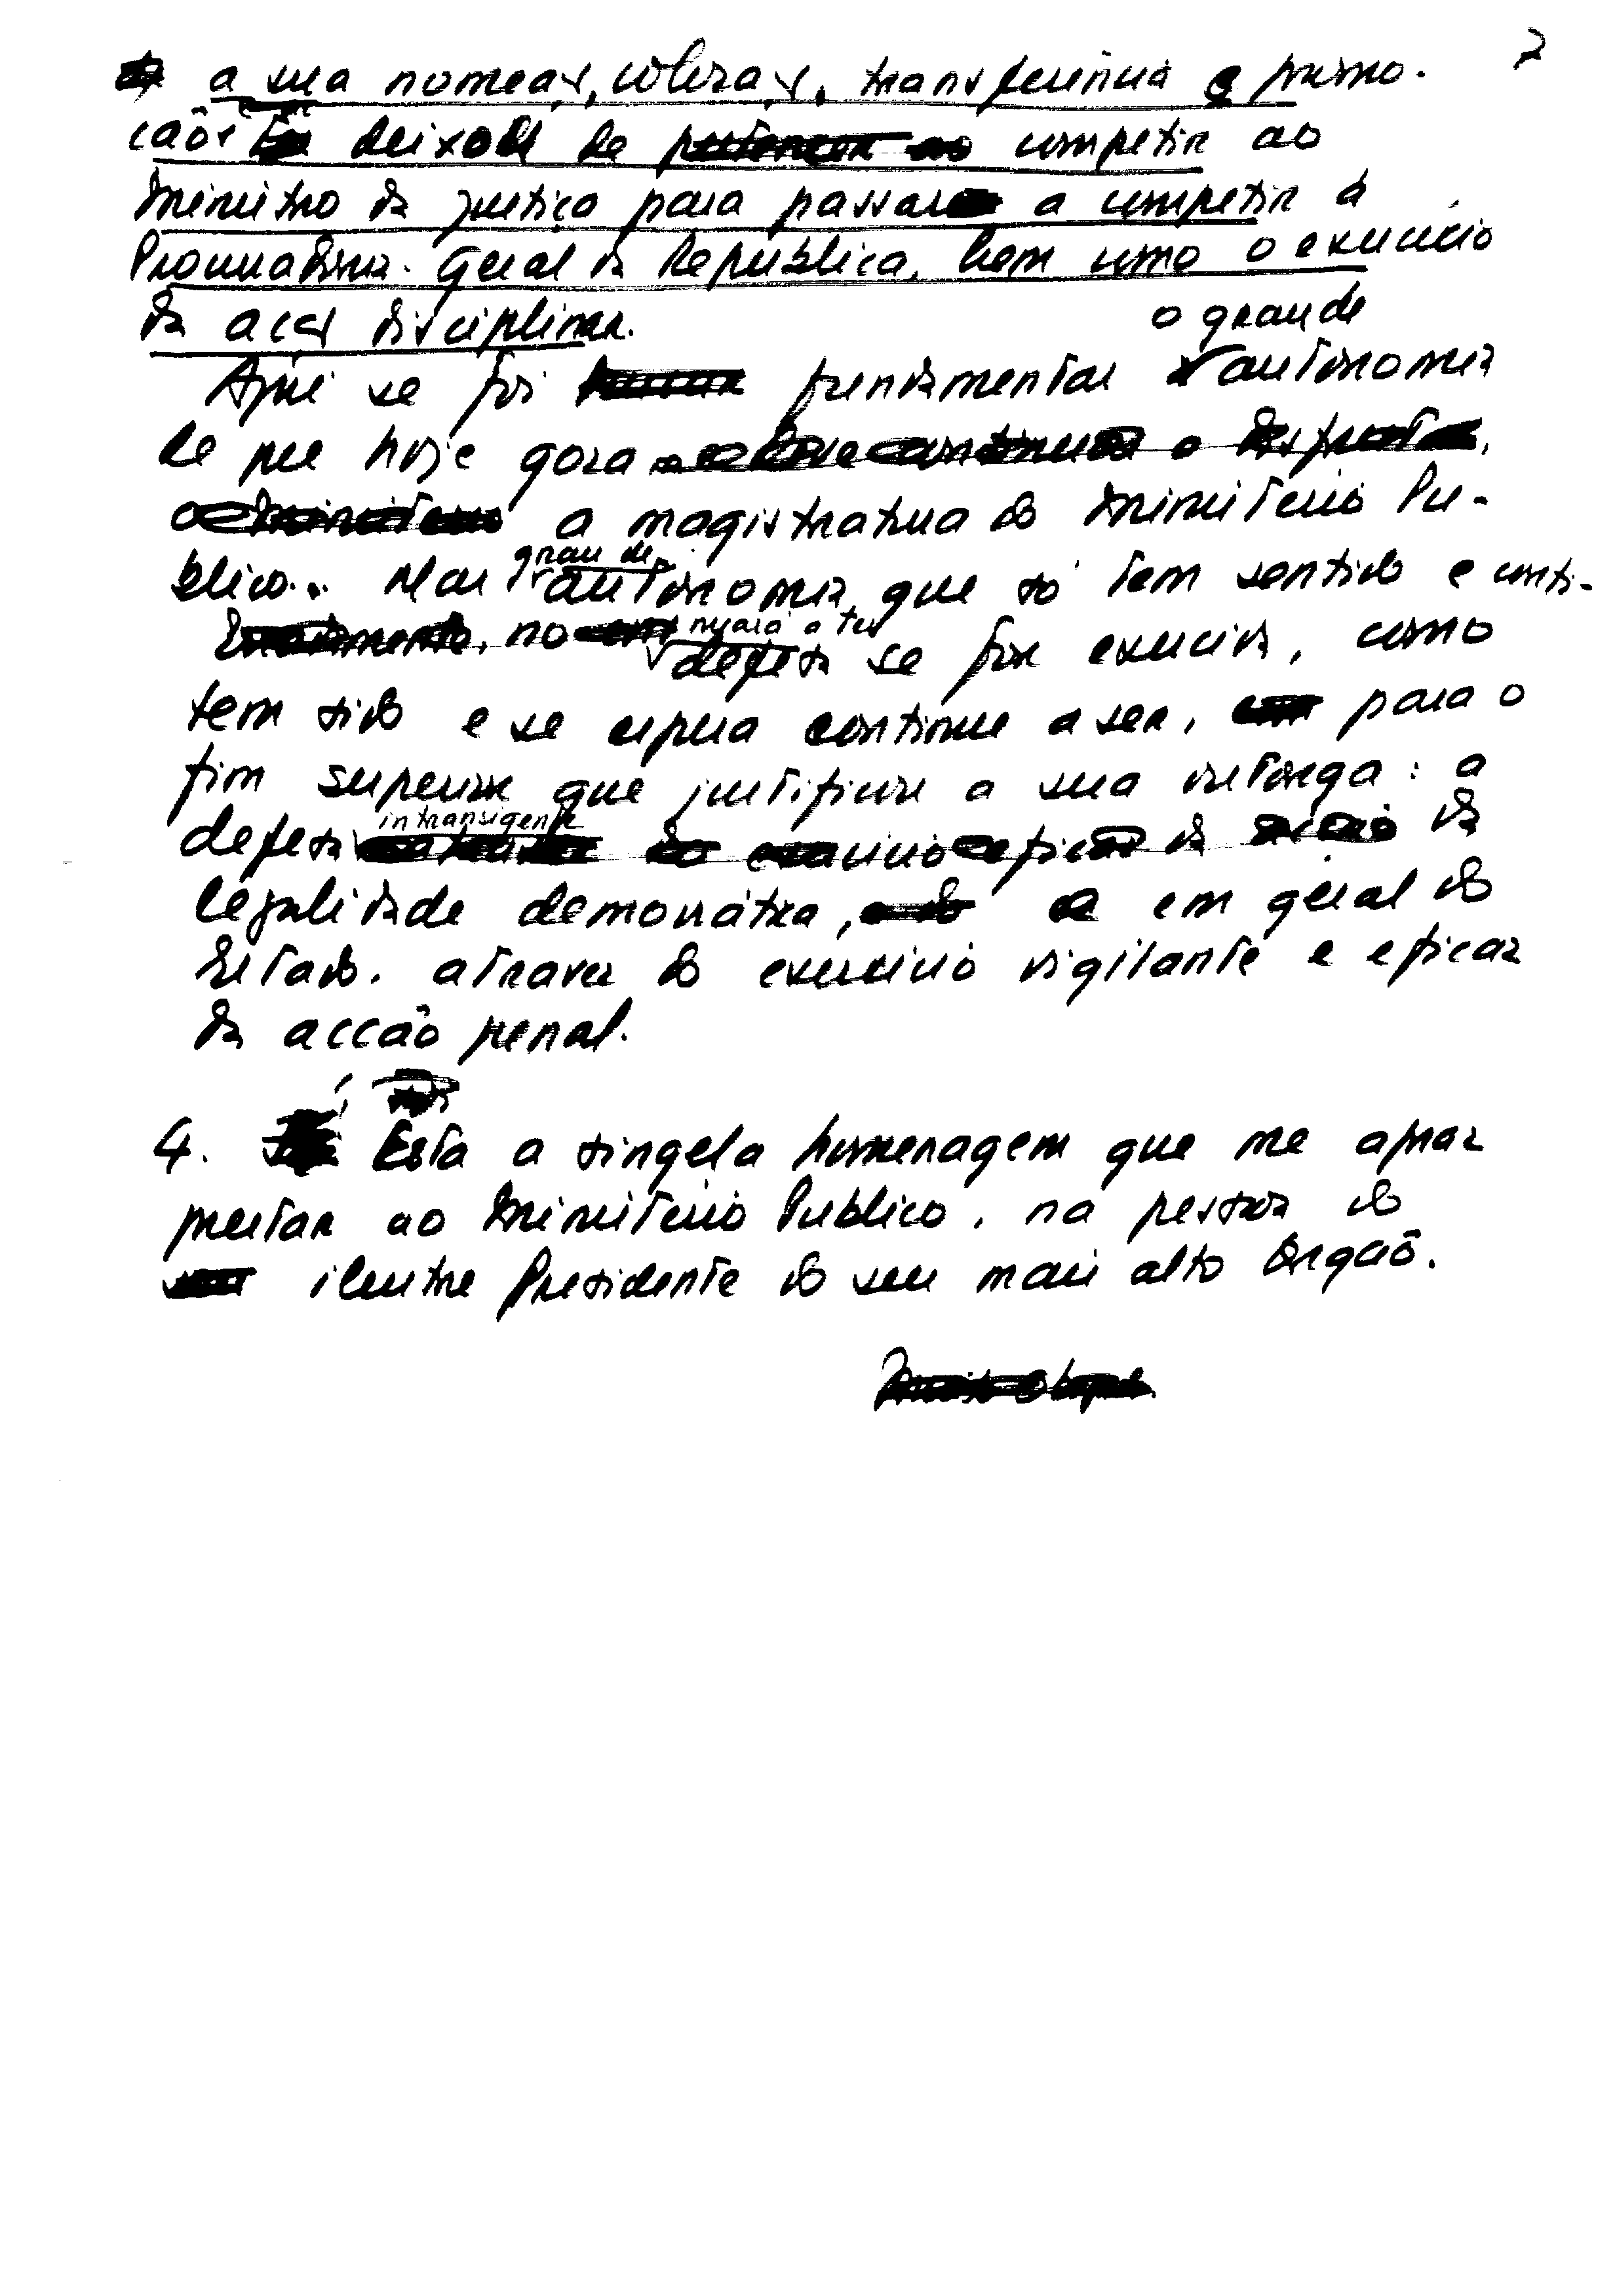 7
a sua nomeação, colocação, transferência e promo-
ção deixou de competir ao
Ministro da Justiça para passar a competir à
Procuradoria-Geral da República, bem como o exercício
da acção disciplinar.
o grau de
Aqui se foi fundamentar autonomia
de que hoje goza
a magistratura do Ministério Pú-
blico. Mas grau de autonomia que só tem sentido e conti-
nuará a ter
defesa se for exercida, como
tem sido e se espera continue a ser, para o
fim superior que justificou a sua outorga: a
defesa intransigente da
legalidade democrática, e em geral do
Estado, através do exercício vigilante e eficaz
da acção penal.
4. Esta a singela homenagem que me apraz
prestar ao Ministério Publico, na pessoa do
ilustre Presidente do seu mais alto Orgão.